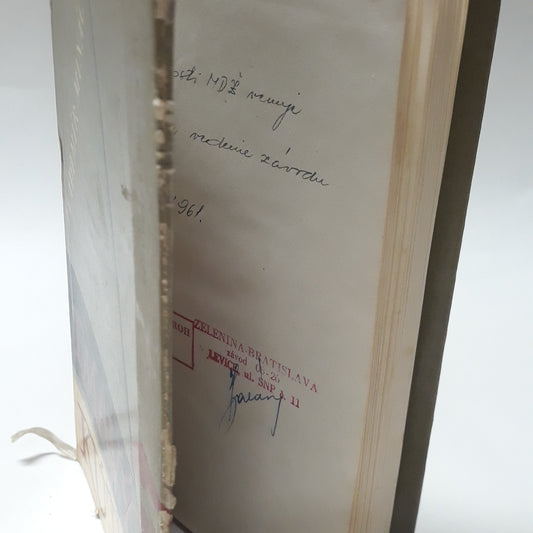 osti MDŽ venuje
vedenie závodu
1961.
ROH
ZELENINA-BRATISLAVA
závod
LEVICE, ul. SNP č. 11